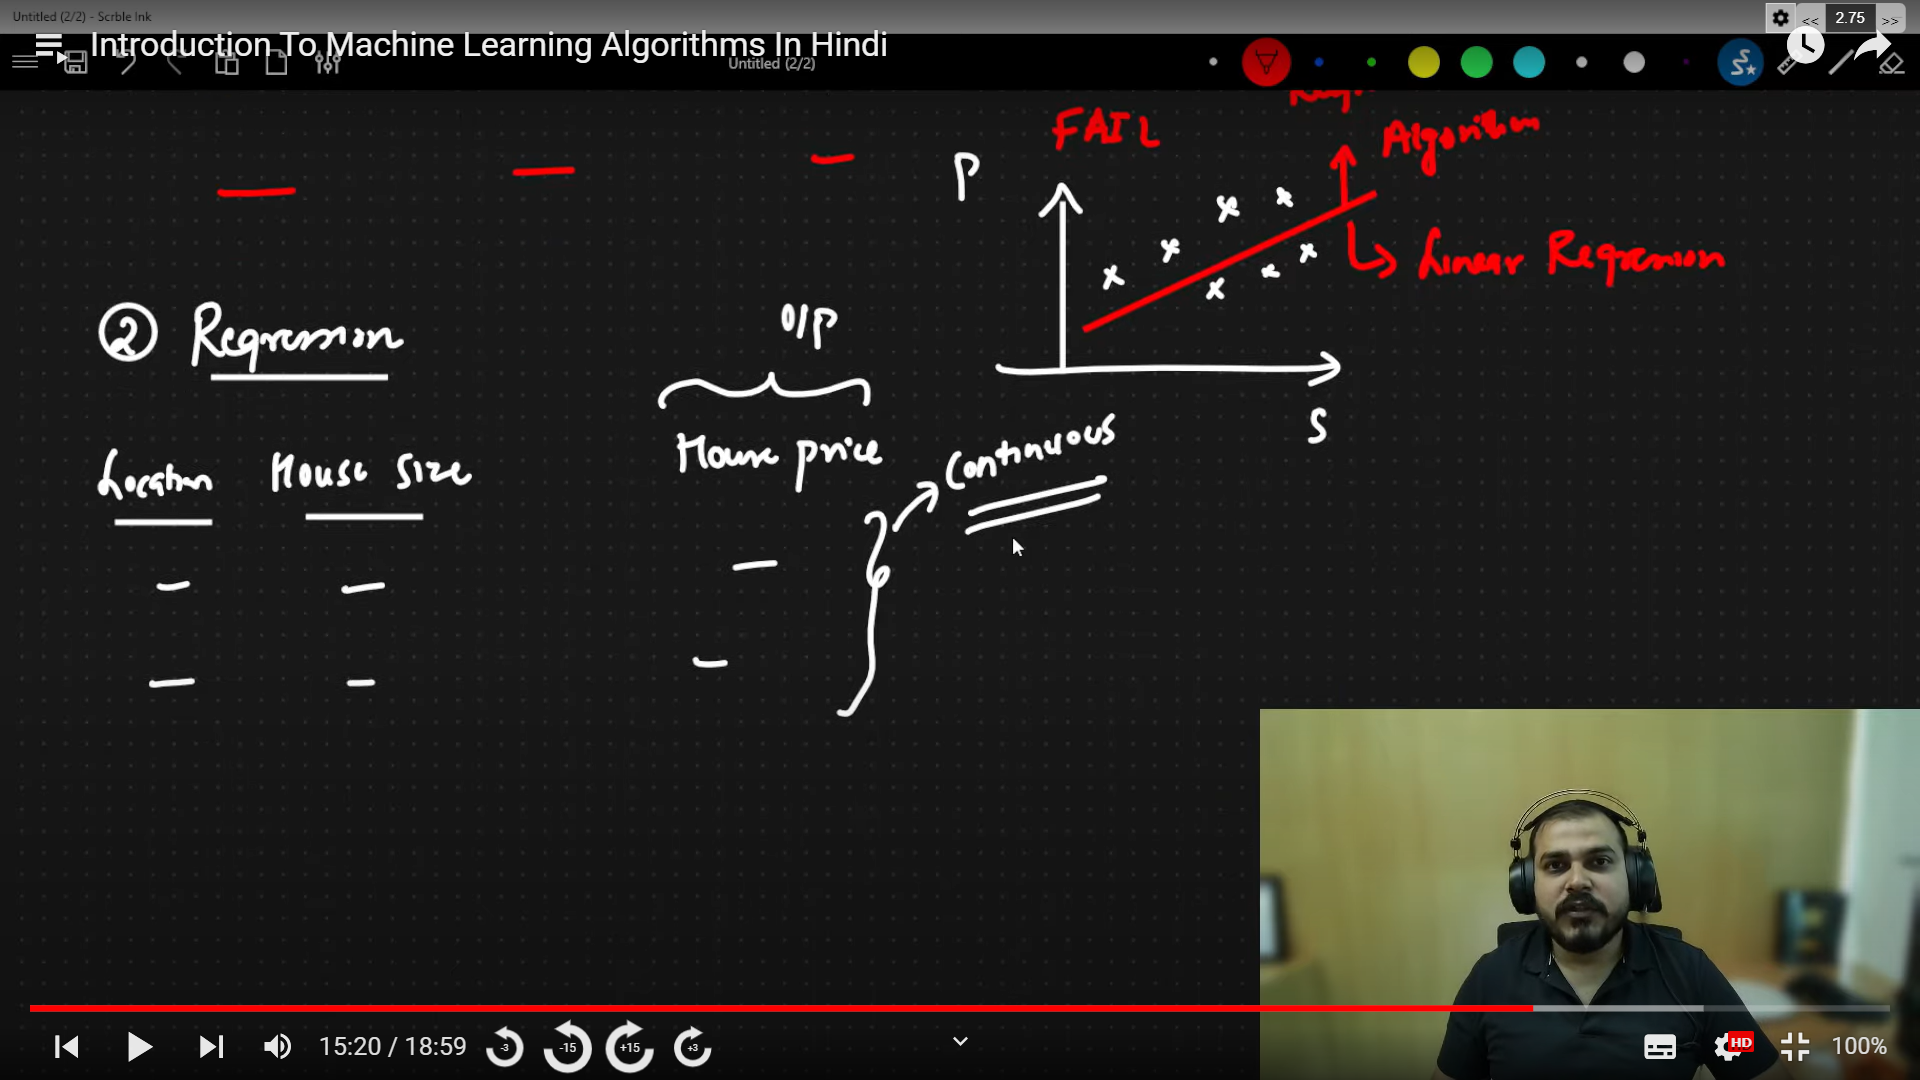 Untitled (2/2) - Scrble Ink
<< 2.75 >>
Introduction To Machine Learning Algorithms In Hindi
Untitled (2/2)
FAIL
Algorithm
P
Linear Regression
② Regression
O/P
S
Location House Size House price Continuous
15:20 / 18:59
-3 -15 +15 +3
HD
100%